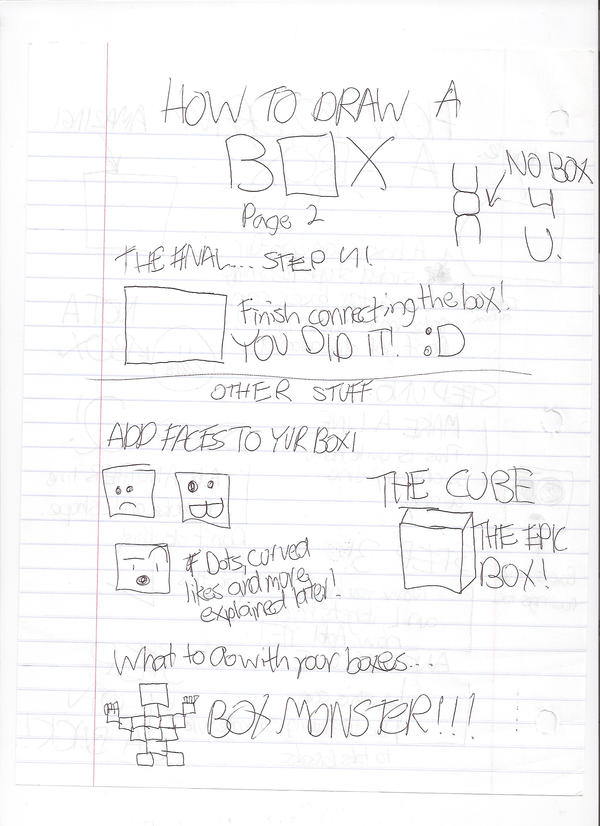 HOW TO DRAW A
BOX
Page 2
NO BOX
4
U.
THE FINAL... STEP 4!
Finish connecting the box!
YOU DID IT! :D
OTHER STUFF
ADD FACES TO YUR BOX!
THE CUBE
THE EPIC
BOX!
# Dots, curved
likes and more
explained later!
What to do with your boxes...
BOX MONSTER!!!